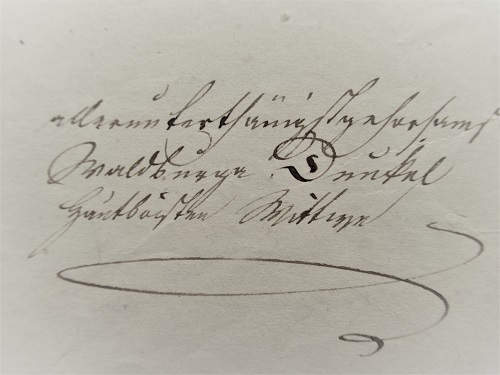 allerunterthänigstgehorsamst
Waldburga Dunkel
Hautboisten Wittwe